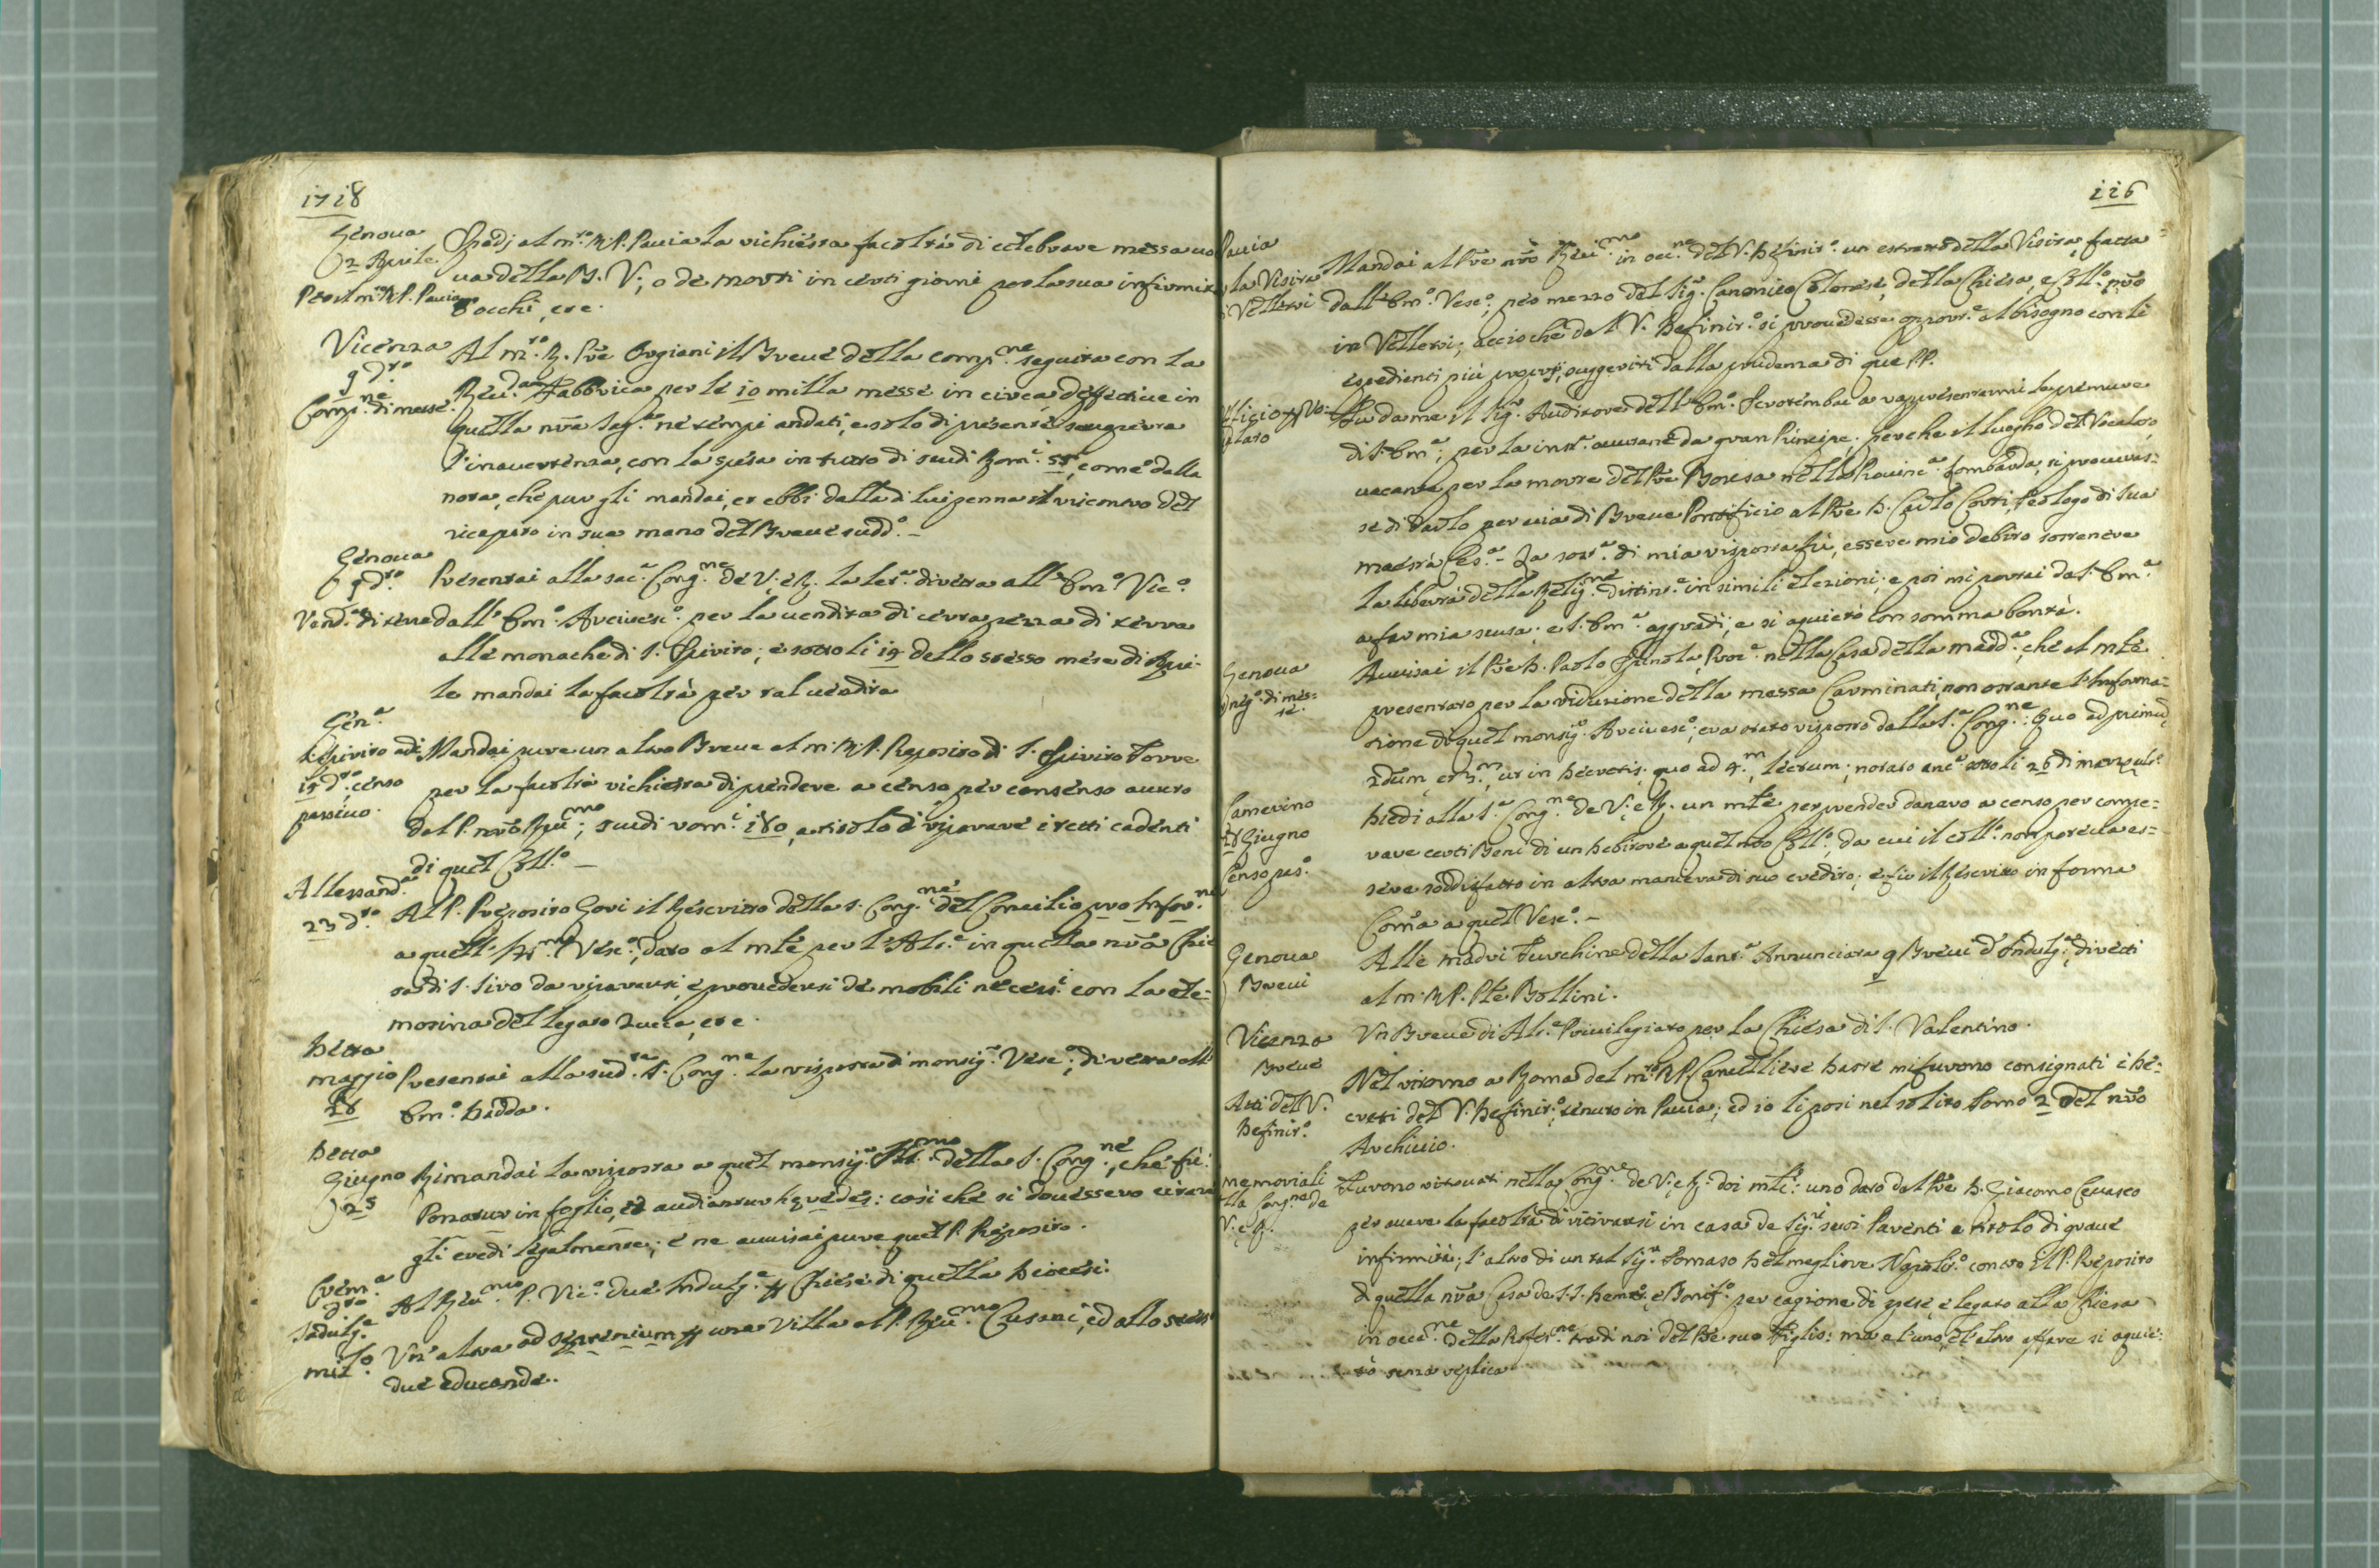 1718
Genoua
2 Aprile.
Per il m.to R. P. Pauia
Spedj al m.to R. P. Pauia la richiesta facoltà di celebrare messa uo
ua della B. V., o de morti in certi giorni per la sua infirmità
d'occhi, etc.
Vicenza
9 d.to
Comp.ne di messe.
Al m.to R. Pre Orgiani il Breue della comp.ne seguita con la
Reu.da Fabbrica per le 10 milla messe in circa deffettiue in
quella nra Sag.a ne tempi andati, e solo di presente
l'inauertenza, con la spesa in tutto di scudi Rom.i 55, come dalla
nota, che pur gli mandai, et ebbi dalla di lui penna il riscontro del
riceputo in sua mano del Breue sudd.o –
Genoua
9 d.to
Vend.a di terre
Presentai alla sac.a Cong.ne de V. e R. la let.a diretta all' Em.o Vic.o
dall' Em.o Arciuesc.o per la uendita di certa pezza di terra
alle monache di S. Spirito; e sotto li 19 dello stesso mese di Apri-
le mandai la facoltà per tal uendita
Gen.a
S. Spirito adi
15 d.to censo
passiuo.
Mandai pure un altro Breue al m. R. P. Preposito di S. Spirito Torre
per la facoltà richiesta di prendere a censo per consenso auuto
dal P. nostro Reu.mo, scudi rom.i 180, a titolo di riparare i tetti cadenti
di quel Coll.o –
Allessand.a
23 d.to
Al P. Preposito Goui il Rescritto della S. Cong.ne del Concilio pro Infor.ne
a quell' Ill.mo Vesc.o, dato al mle per l'Alt.e in quella nra Chie
sa di S. Siro da ripararsi, e prouedersi de mobili necess.i con la ele-
mosina del legato Zucca, etc.
Detta
maggio
28
Presentai alla sud.ta S. Cong.ne la risposta di monsig.r Vesc.o, diretta all'
Em.o Dadda.
Detta
Giugno
25
Rimandai la risposta a quel monsig.r Ill.mo della S. Cong.ne, che fù:
Ponatur in foglio, et audiantur Hqredes: così che si douessero citare
gli eredi legalmente; e ne auuisai pure quel P. Preposito.
Crem.a
d.to
Indulg.e
Al Reu.mo P. Vic.o due Indulg.e p Chiese di quella Diocesi.
mil.o
Vn' altra ad septenium p una Villa al P. Reu.mo Cusani, ed allo stess
due educande.
116
Pauia
la Visita
Velletri
Mandai al Pre nro Reu.mo in occ.ne del V. Definit.o un estratto della Visita, fatta
dall' Em.o Vesc.o, per mezzo del Sig.r Canonico Colonese, della Chiesa, e Coll.o nro
in Velletri; acciochè dal V. Definit.o si prouedesse opport.e al bisogno con li
espedienti più proprj, suggeriti dalla prudenza di que PP.
Vficio p Vo-
calato
Fu da me il Sig.r Auditore dell' Em.o Scrotembac a rappresentarmi le premure
di S. Em.a, per la inst.a auutane da gran Principe, perche il luogho del Vocalato
uacante per la morte del Pre Boresa nella Prouinc.a Lombarda, si procuras-
se di darlo per uia di Breue Pontificio al Pre D. Carlo Corti, Teologo di Sua
maestà Ces.a – La sost.a di mia risposta fù, essere mio debito sostenere
la libertà della Relig.ne distint.e in simili elezioni; e poi mi portai da S. Em.a
a far mia scusa. e S. Em.a aggradì, e si aquietò con somma bontà.
Genoua
neg.o di mes-
se.
Auuisai il Pre D. Paolo Spinola, Proc.e nella Casa della madd.a, che al mle
presentato per la riduzione della messa Carminati, non ostante l'Informa-
zione di quel monsig.r Arciuesc.o; era stato risposto dalla S.a Cong.ne: Quo ad primũ
2dum et 3.m, ut in Decretis; quo ad 4.m, lectum; notato anc.a sotto li 26 di
Camerino
28 Giugno
Censo pas.o
Diedi alla S.a Cong.ne de V. e R. un mle per prender danaro a censo per compe-
rare certi Beni di un Debitore a quel nro Coll.o, da cui il coll.o non poteua es-
sere soddisfatto in altra maniera di suo credito; e fù il Rescritto in forma
Com̃a a quel Vesc.o –
Genoua
Breui
Alle madri Turchine della Sant.a Annunciata 9 Breui d' Indulg.e, diretti
al m. R. P. Pre Bollini.
Vicenza
Breue
Vn Breue di Alt.e Priuilegiato per la Chiesa di S. Valentino.
Atti del V.
Definit.o
Nel ritorno a Roma del m.to R. P. Cancelliere mi furono consignati i De-
creti del V. Definit.o, tenuto in Pauia; ed io li posi nel solito Tomo 2 del nro
Archiuio.
memoriali
lla Cong.ne de
V. e R.
Furono ritrouati nella Cong.ne de V. e R. doi mli: uno dato dal Pre D. Giacomo Ceuasco
per auere la facoltà di ritirarsi in casa de Sig.ri suoi Parenti a titolo di graue
infirmità; l'altro di un tal Sig.r Tomaso Delmegliore Napolit.o contro il P. Preposito
di quella nra Casa de S.S. Demet. e Bonif.o per cagione di spese e legato alla Chiesa
in occ.ne della Profes.ne tra di noi del Pre suo Figlio: ma l'uno, e l'altro affare si aquie-
tò senza replica